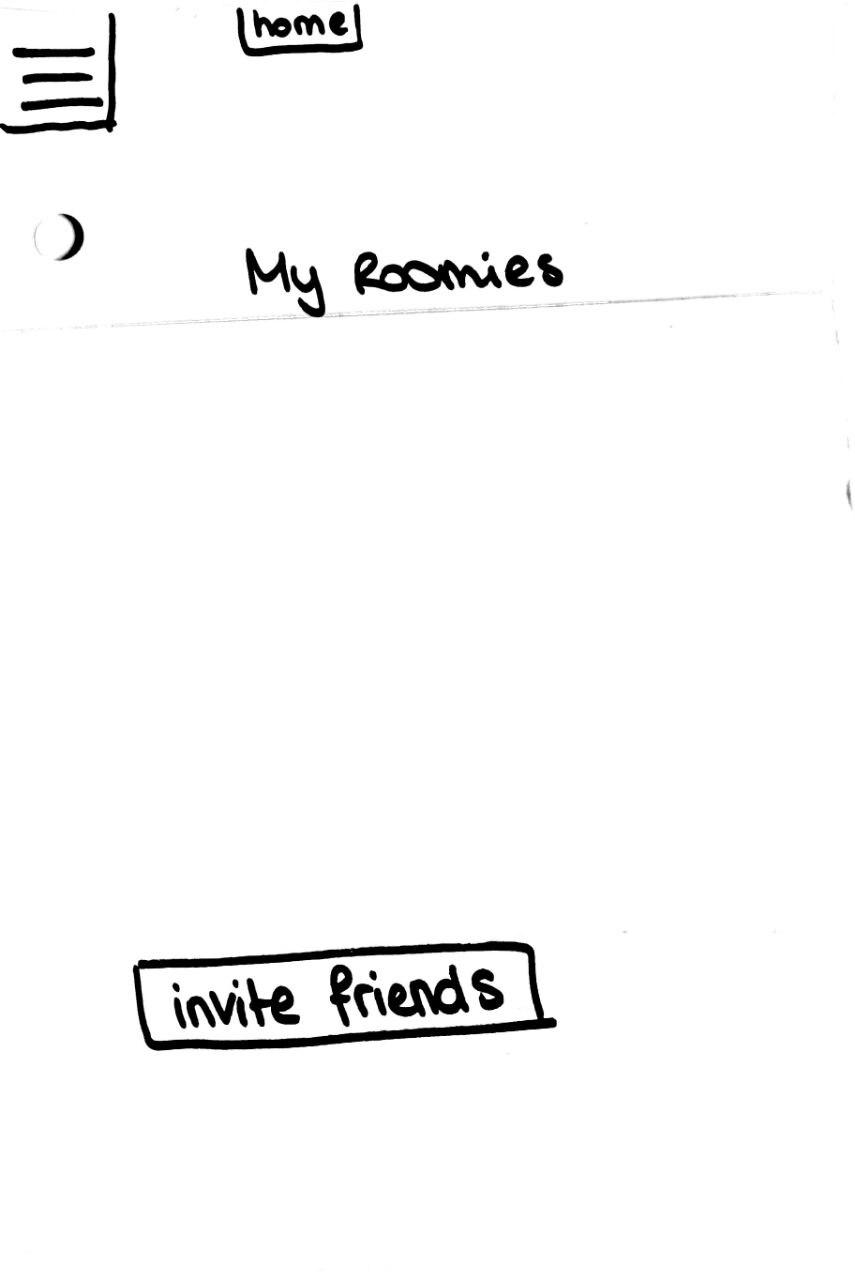 home
My Roomies
invite friends